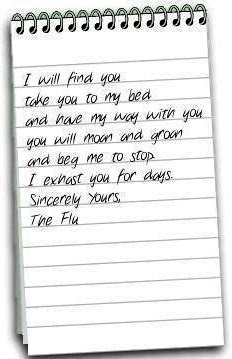 I will find you
take you to my bed
and have my way with you
you will moan and groan
and beg me to stop.
I exhast you for days.
Sincerely Yours,
The Flu